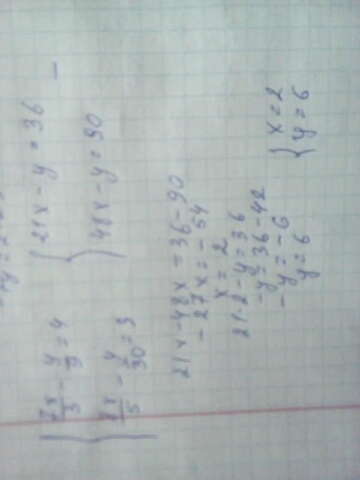 7x/3 - y/9 = 4
8x/5 - y/30 = 3
21x - y = 36
48x - y = 90
21x - 48x = 36 - 90
- 27x = - 54
x = 2
21·2 - y = 36
- y = 36 - 42
- y = - 6
y = 6
{ x = 2
y = 6